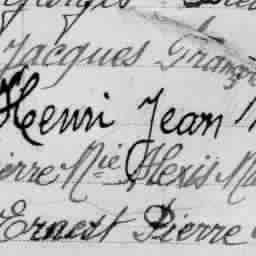 Jacques
Henri Jean
ierre Mie Alexis
Ernest Pierre